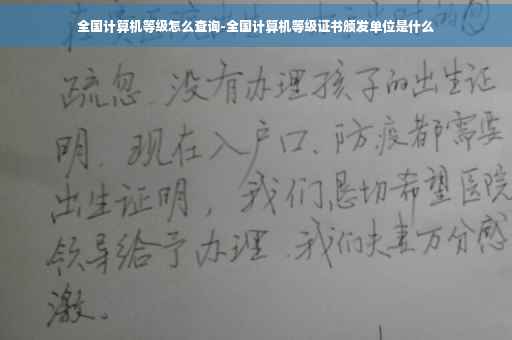 全国计算机等级怎么查询-全国计算机等级证书颁发单位是什么
疏忽、没有办理孩子的出生证
明、现在入户口、防疫都需要
出生证明，我们恳切希望医院
领导给予办理、我们夫妻万分感
激。